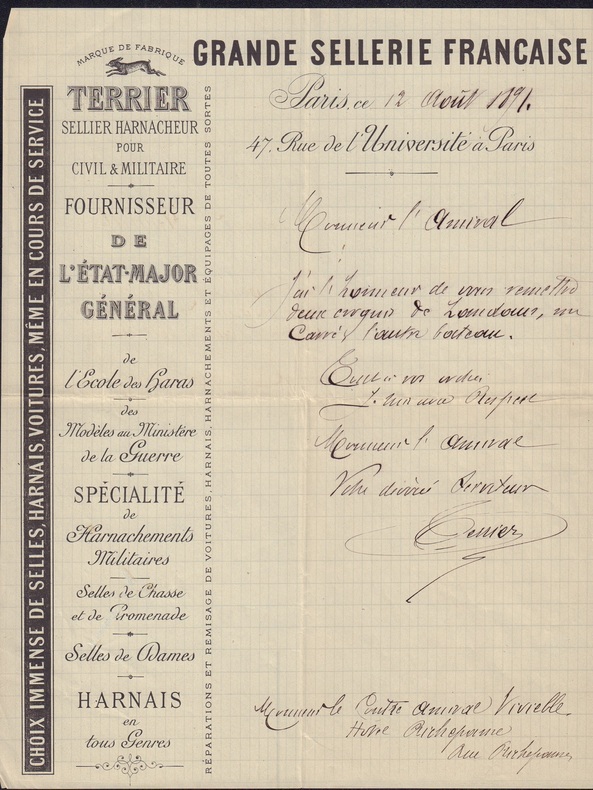 GRANDE SELLERIE FRANCAISE
MARQUE DE FABRIQUE
TERRIER
SELLIER HARNACHEUR
POUR
CIVIL & MILITAIRE
FOURNISSEUR
DE
L'ÉTAT-MAJOR
GÉNÉRAL
de
l'École des Haras
des
Modèles au Ministère
de la Guerre
SPÉCIALITÉ
de
Harnachements
Militaires
Selles de Chasse
et de Promenade
Selles de Dames
HARNAIS
en
tous Genres
CHOIX IMMENSE DE SELLES, HARNAIS, VOITURES, MÊME EN COURS DE SERVICE
RÉPARATIONS ET REMISAGE DE VOITURES, HARNAIS, HARNACHEMENTS ET ÉQUIPAGES DE TOUTES SORTES
Paris, ce 12 Août 1891.
47, Rue de l'Université à Paris
Monsieur l'Amiral
J'ai l'honneur de vous remettre
deux croquis de Landaus, un
Carré & l'autre bateau.
Tout à vos ordres
Je suis avec Respect
Monsieur l'Amiral
Votre dévoué Serviteur
Terrier
Monsieur le Contre Amiral Vivielle
Hotel Richepanse
Rue Richepanse